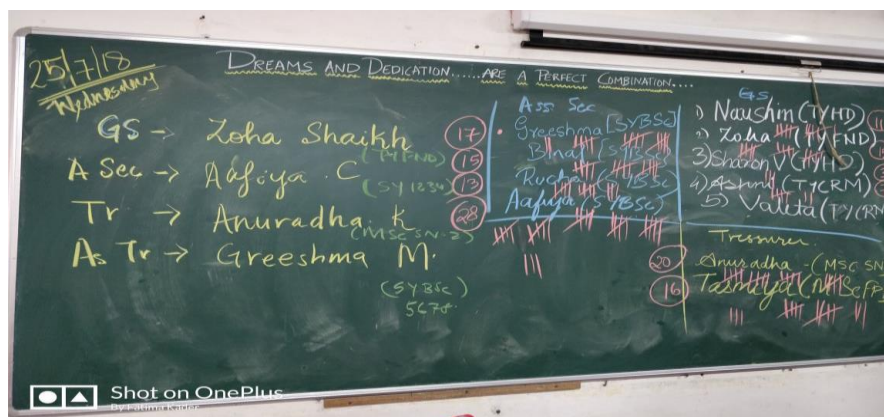 25/7/18
Wednesday
DREAMS AND DEDICATION......ARE A PERFECT COMBINATION....
GS → Zoha Shaikh
(TYFND)
A Sec → Aafiya . C
(SY1234)
Tr → Anuradha. K
(MSC SN-2)
As Tr → Greeshma M.
(SYBSc)
5678
Ass Sec
17 Greeshma [SYBSc]
15 (SYBSc)
13 (SYBSc)
28 Aafiya (SYBSc)
GS
1) Naushin (TYHD)
2) Zoha (TYFND)
3) Sharon V (TYHD)
4) (TYCRM)
5) (TYCRM
Treasurer
20 Anuradha - (MSC SN
16 (MSc
Shot on OnePlus
By Fatima Kader